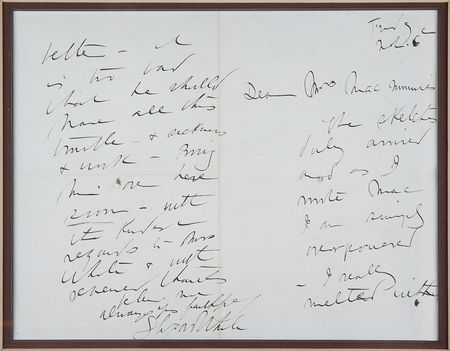 Tuesday
Feb. 6
Dear Mrs MacMonnies
The sketches
duly arrived
and as I
wrote Mac
I am simply
overpowered
- I really
melted with
better - it
is too bad
that he should
have all this
trouble - & sickness
& work - Bring
him over here
soon - with
the kindest
regards to Mrs
White & with
renewed thanks
believe me
always faithfully
Stanford White